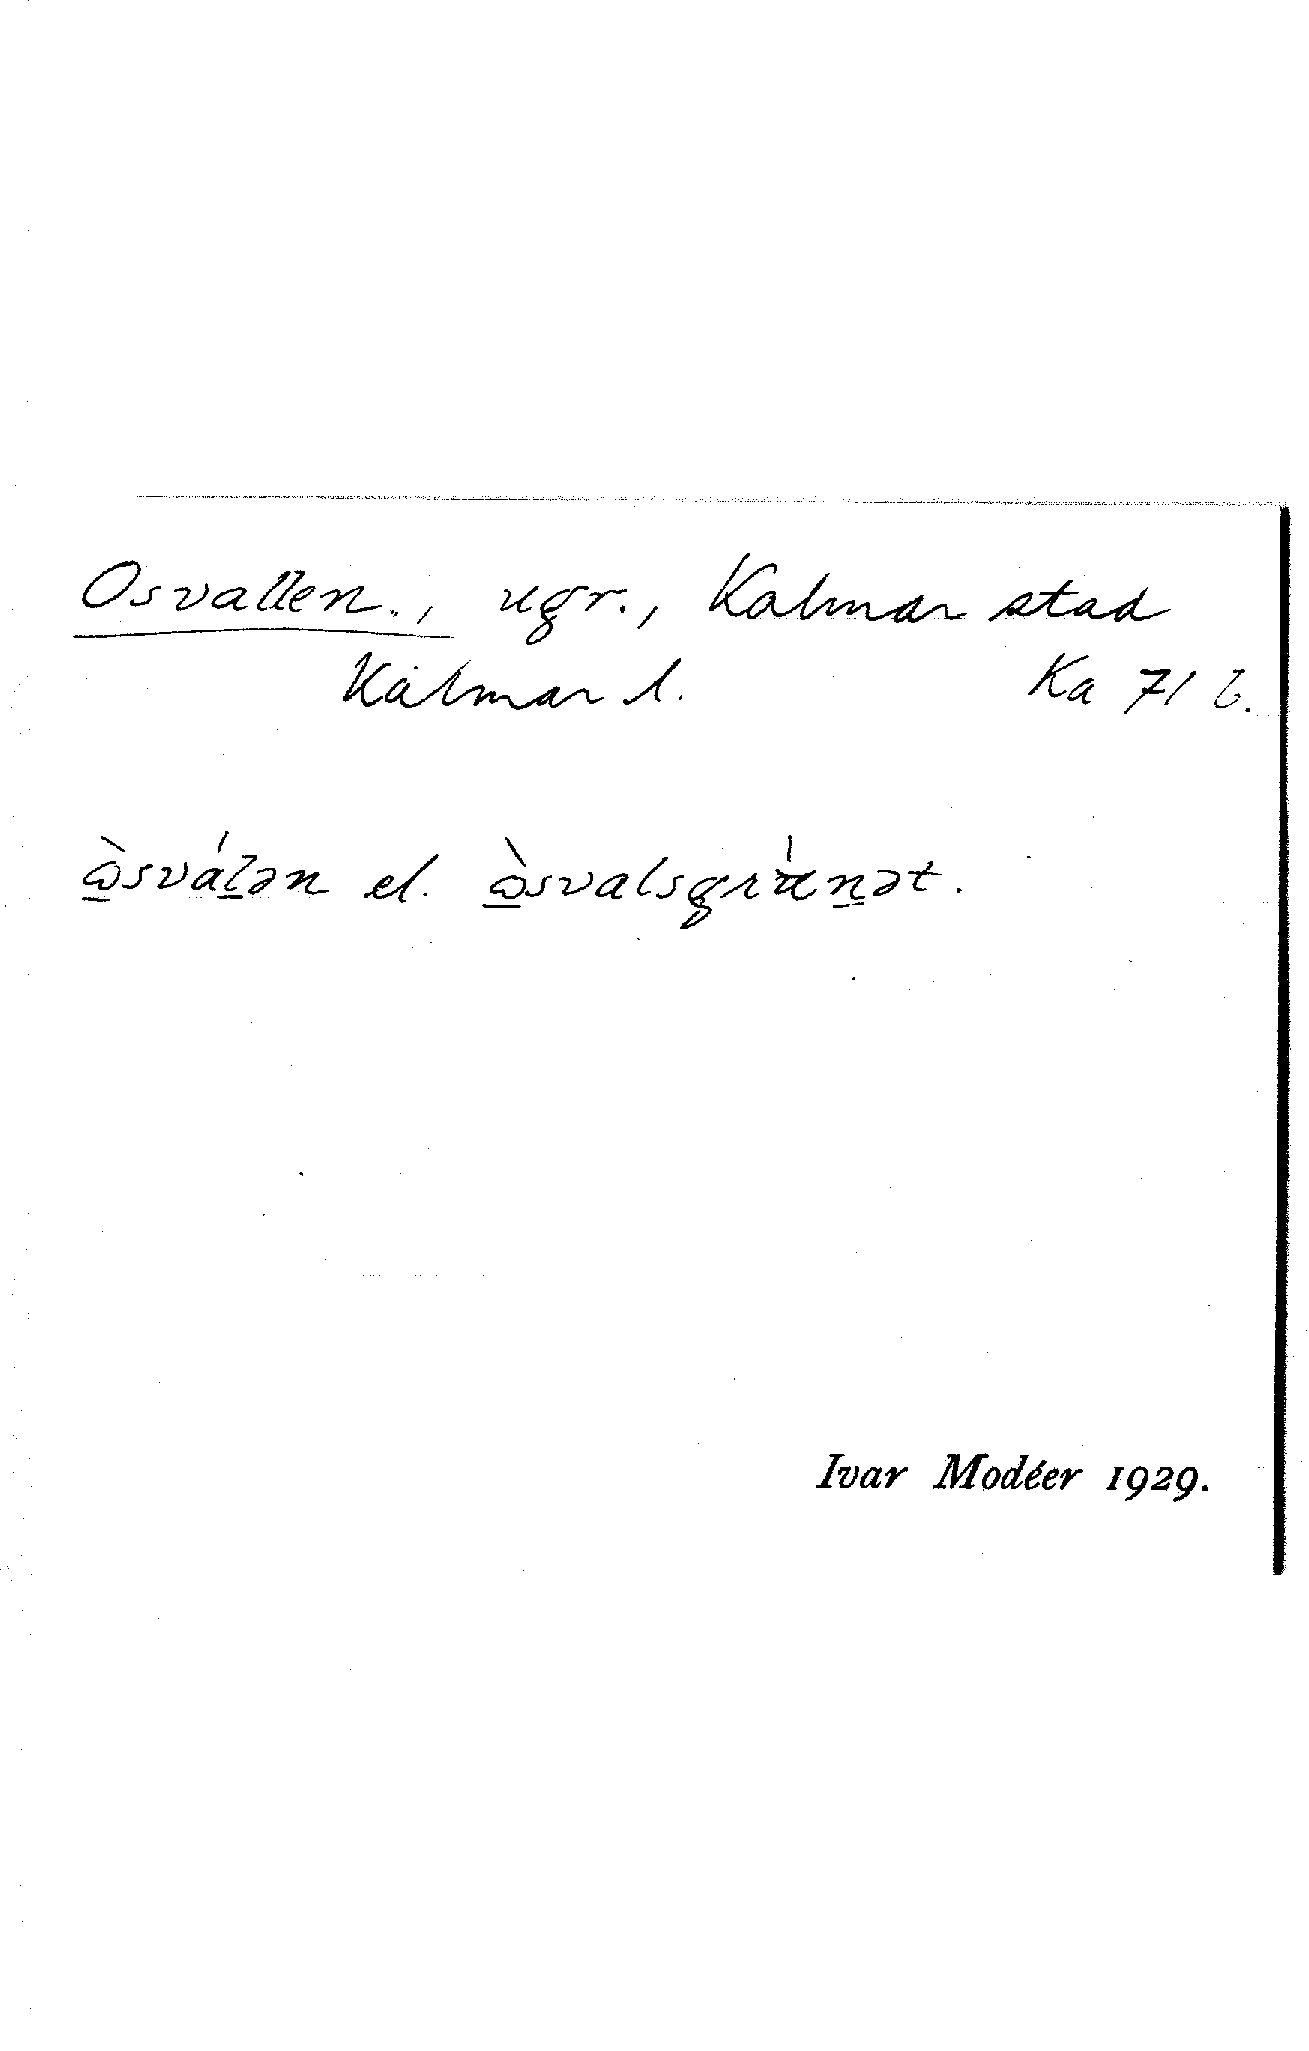 Osvallen., ugr., Kalmar stad
Kalmar l. Ka 71 b.
ɷ̠̀svál̠ən el. ɷ̠̀svalsgrǽn̠ət.
Ivar Modéer 1929.